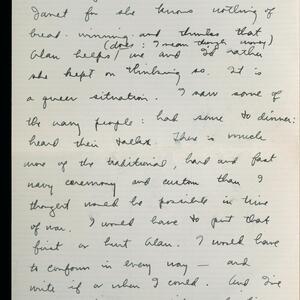 Janet for she knows nothing of
bread-winning and thinks that
(does: I mean though money)
Alan helps me and I'd rather
she kept on thinking so. It is
a queer situation. I saw some of
the navy people: had some to dinner:
heard their talks. There is much
more of the traditional, hard and fast
navy ceremony and custom than I
thought would be possible in time
of war. I would have to put that
first or hurt Alan. I would have
to conform in every way — and
write if or when I could. And I've